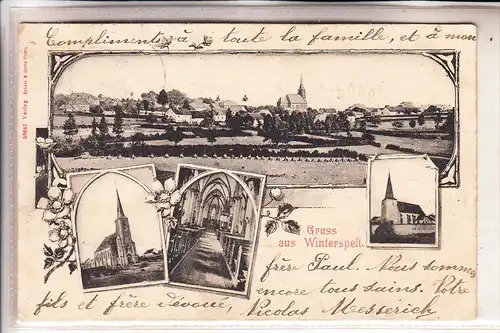 Compliments à toute la famille, et à mon
Gruss
aus Winterspelt.
frère Paul. Nous sommes
encore tous sains. Votre
fils et frère dévoué, Nicolas Messerich
Verlag